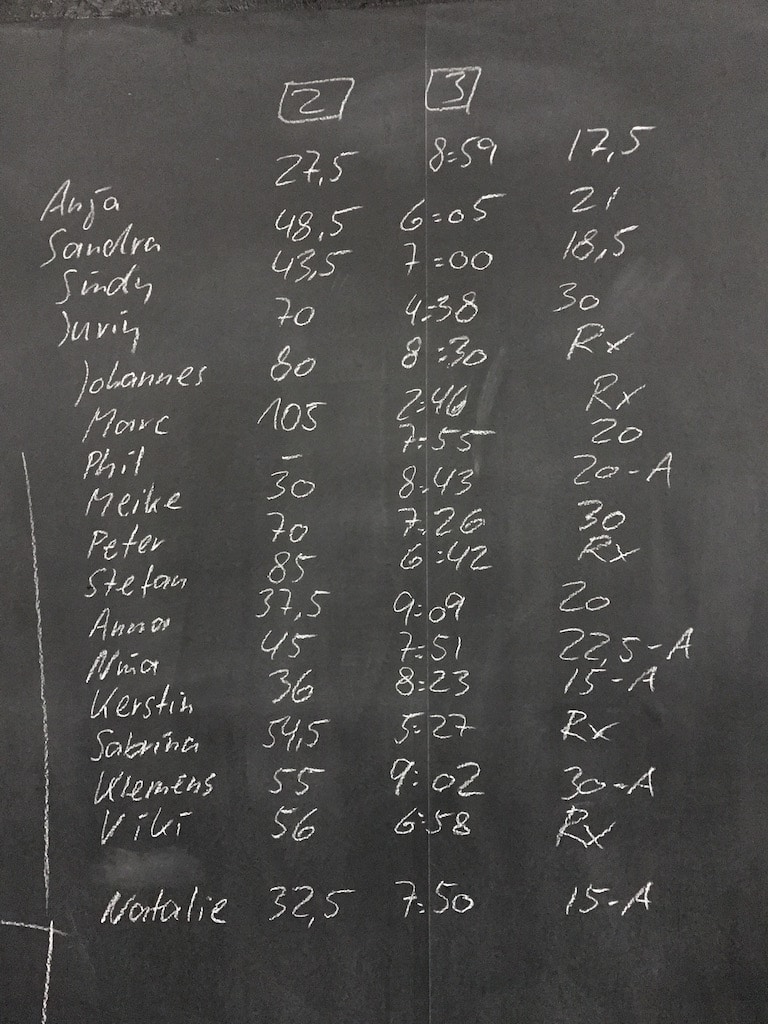 2 3
Anja 27,5 8:59 17,5
Sandra 48,5 6:05 21
Sindy 43,5 7:00 18,5
70 4:38 30
Johannes 80 8:30 Rx
Marc 105 2:46 Rx
Phil – 7:55 20
Meike 30 8:43 20-A
Peter 70 7:26 30
Stefan 85 6:42 Rx
Anna 37,5 9:09 20
Nina 45 7:51 22,5-A
Kerstin 36 8:23 15-A
Sabrina 54,5 5:27 Rx
Klemens 55 9:02 30-A
Viki 56 6:58 Rx
Natalie 32,5 7:50 15-A